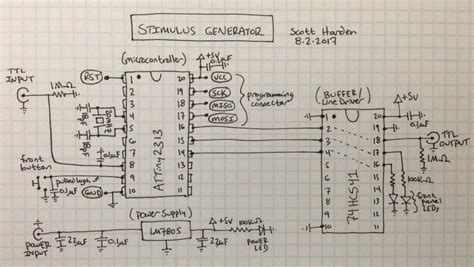 STIMULUS GENERATOR
Scott Harden
8.2.2017
(microcontroller)
+5V
0.1µF
TTL
INPUT
1MΩ
RST
1
2
3
4
5
6
7
8
9
10
20
19
18
17
16
15
14
13
12
11
ATTiny2313
VCC
SCK
MISO
MOSI
programming
connector
18pF
20MHz
18pF
front
button
pulled high
0.1µF
GND
(BUFFER/
Line Driver)
1
2
3
4
5
6
7
8
9
10
20
19
18
17
16
15
14
13
12
11
74HC541
+5V
0.1µF
TTL
OUTPUT
1MΩ
100KΩ
front
panel
LEDs
(power supply)
LM7805
POWER
INPUT
22µF
0.1µF
+5V
22µF
100KΩ
power
LED